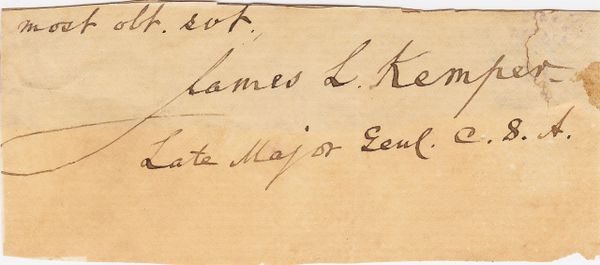 most obt. svt.,
James L. Kemper
Late Major Genl. C. S. A.